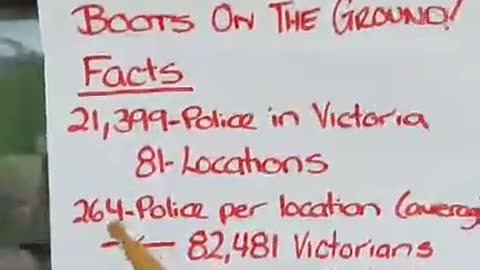 BOOTS ON THE GROUND!
Facts
21,399-Police in Victoria
81-Locations
264-Police per location (averag
82,481 Victorians